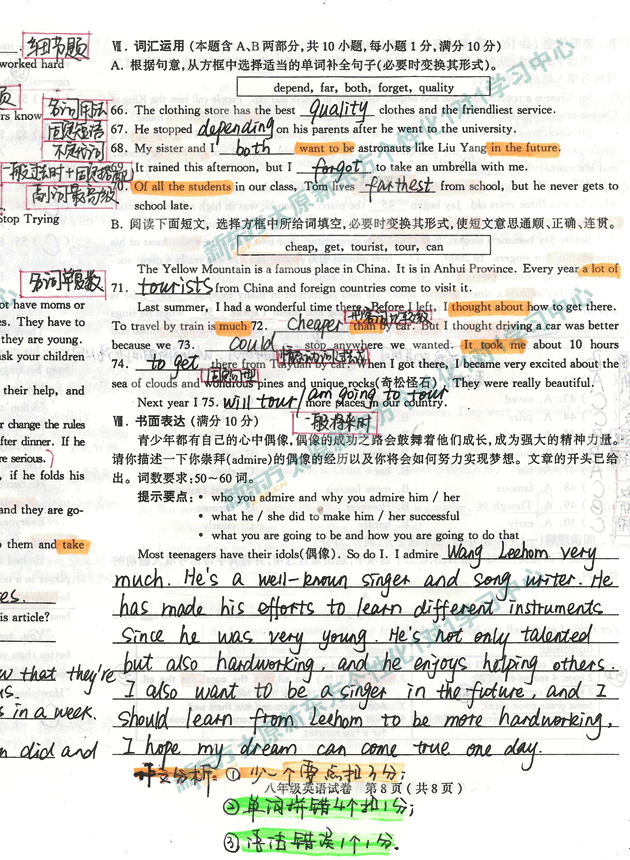 细节题
worked hard
页
ers know
名词用法
固定短语
不定代词
一般过去时+固定搭配
副词最高级
Stop Trying
名词单复数
ot have moms or
es. They have to
they are young.
ask your children
their help, and
r change the rules
fter dinner. If he
re serious.)
, if he folds his
and they are go-
o them and take
es.
is article?
ow that they're
us.
s in a week.
n did and
Ⅶ. 词汇运用 (本题含A、B两部分,共10小题,每小题1分,满分10分)
A. 根据句意,从方框中选择适当的单词补全句子(必要时变换其形式)。
depend, far, both, forget, quality
66. The clothing store has the best quality clothes and the friendliest service.
67. He stopped depending on his parents after he went to the university.
68. My sister and I both want to be astronauts like Liu Yang in the future.
69. It rained this afternoon, but I forgot to take an umbrella with me.
70. Of all the students in our class, Tom lives farthest from school, but he never gets to
school late.
B. 阅读下面短文, 选择方框中所给词填空,必要时变换其形式,使短文意思通顺、正确、连贯。
cheap, get, tourist, tour, can
The Yellow Mountain is a famous place in China. It is in Anhui Province. Every year a lot of
71. tourists from China and foreign countries come to visit it.
Last summer, I had a wonderful time there. Before I left, I thought about how to get there.
形容词比较级
To travel by train is much 72. cheaper than by car. But I thought driving a car was better
because we 73. could stop anywhere we wanted. It took me about 10 hours
情态动词过去式
74. to get there from Taiyuan by car. When I got there, I became very excited about the
sea of clouds and wondrous pines and unique rocks(奇松怪石). They were really beautiful.
Next year I 75. will tour/am going to tour more places in our country.
一般将来时
Ⅷ. 书面表达 (满分10分)
青少年都有自己的心中偶像,偶像的成功之路会鼓舞着他们成长,成为强大的精神力量。
请你描述一下你崇拜(admire)的偶像的经历以及你将会如何努力实现梦想。文章的开头已给
出。词数要求:50~60词。
提示要点: • who you admire and why you admire him / her
• what he / she did to make him / her successful
• what you are going to be and how you are going to do that
Most teenagers have their idols(偶像). So do I. I admire Wang Leehom very
much. He's a well-known singer and song writer. He
has made his efforts to learn different instruments
since he was very young. He's not only talented
but also hardworking, and he enjoys helping others.
I also want to be a singer in the future, and I
should learn from Leehom to be more hardworking.
I hope my dream can come true one day.
作文分析: ① 少一个要点扣3分;
八年级英语试卷 第8页(共8页)
② 单词拼错4个扣1分;
③ 语法错误1个1分.